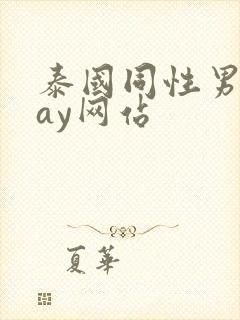 泰國同性男
ay网佔
夏華